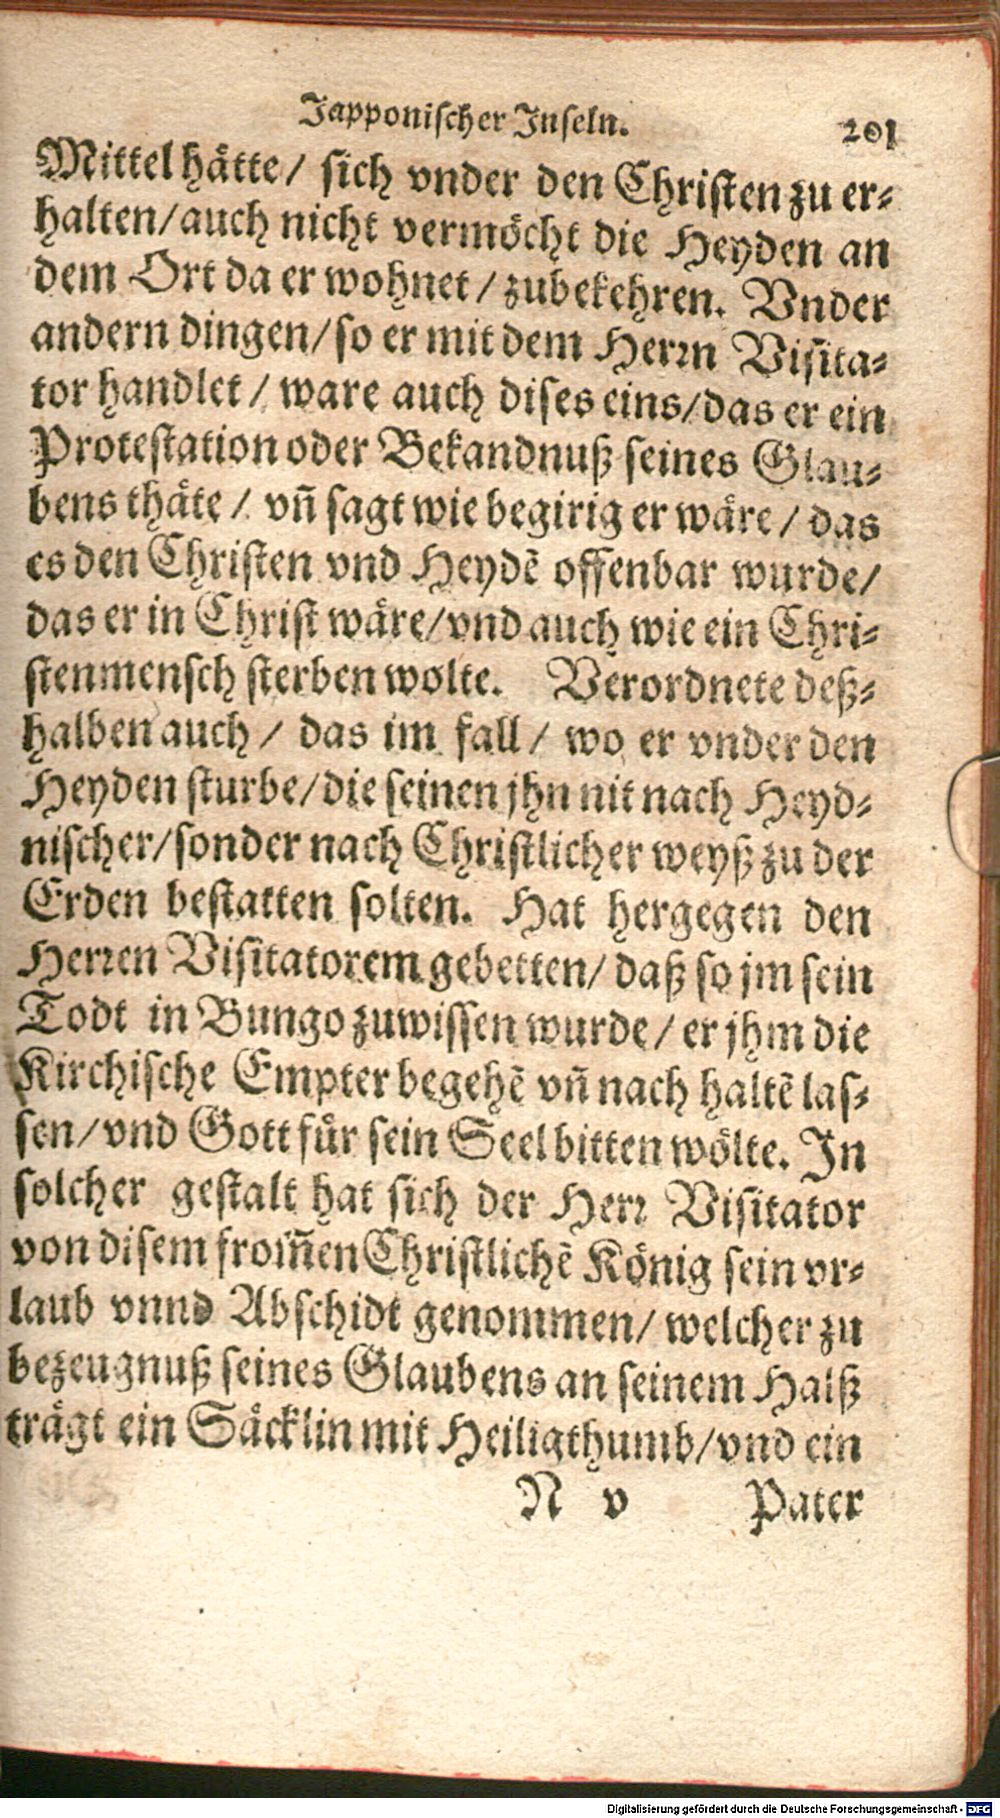 Japponischer Inseln. 201
Mittel hätte/ sich vnder den Christen zu er-
halten/auch nicht vermöcht die Heyden an
dem Ort da er wohnet/ zubekehren. Vnder
andern dingen/so er mit dem Herrn Visita-
tor handlet/ ware auch dises eins/das er ein
Protestation oder Bekandnuß seines Glau-
bens thäte/ vñ sagt wie begirig er wäre/ das
es den Christen vnd Heydẽ offenbar wurde/
das er in Christ wäre/vnd auch wie ein Chri-
stenmensch sterben wolte. Verordnete deß-
halben auch/ das im fall/ wo er vnder den
Heyden sturbe/die seinen jhn nit nach Heyd-
nischer/sonder nach Christlicher weyß zu der
Erden bestatten solten. Hat hergegen den
Herren Visitatorem gebetten/ daß so jm sein
Todt in Bungo zuwissen wurde/ er jhm die
Kirchische Empter begehẽ vñ nach haltẽ las-
sen/vnd Gott für sein Seel bitten wölte. In
solcher gestalt hat sich der Herr Visitator
von disem from̃en Christlichẽ König sein vr-
laub vnnd Abschidt genommen/ welcher zu
bezeugnuß seines Glaubens an seinem Halß
trägt ein Säcklin mit Heiligthumb/vnd ein
N v Pater
Digitalisierung gefördert durch die Deutsche Forschungsgemeinschaft - DFG